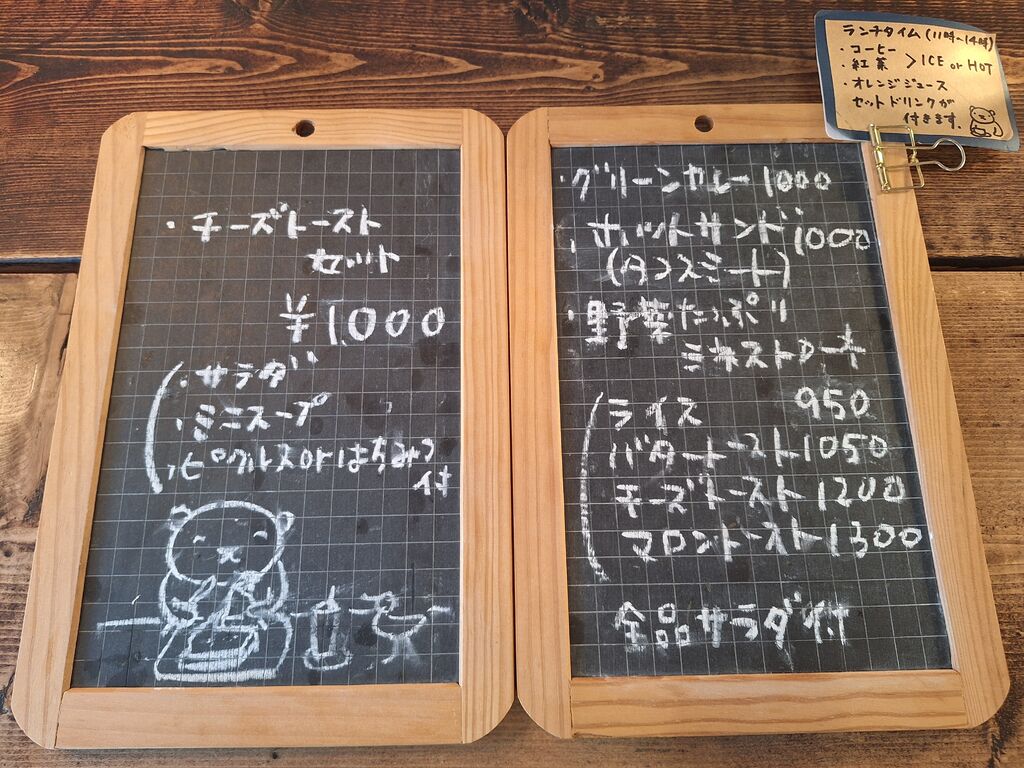 ・チーズトースト
セット
¥1000
・サラダ
・ミニスープ
・ピクルスorはちみつ
付
・グリーンカレー 1000
・ホットサンド 1000
(タコスミート)
・野菜たっぷり
ミネストローネ
ライス 950
バタートースト 1050
チーズトースト 1200
マロントースト 1300
全品サラダ付
ランチタイム(11時~14時)
・コーヒー
・紅茶 >ICE or HOT
・オレンジジュース
セットドリンクが
付きます.